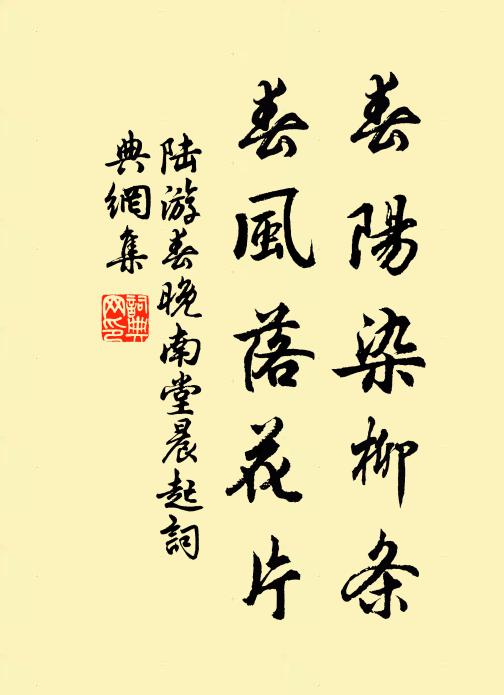 春陽染柳条
春風落花片
陸游春晚南堂晨起詞
典網集
詞典
网印